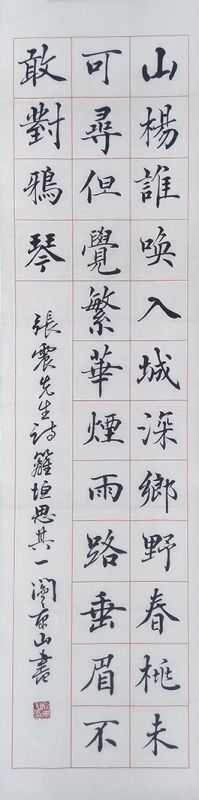 山楊誰喚入城深鄉野春桃未
可尋但覺繁華煙雨路垂眉不
敢對鴉琴
張震先生诗籬垣思其一閩東山書